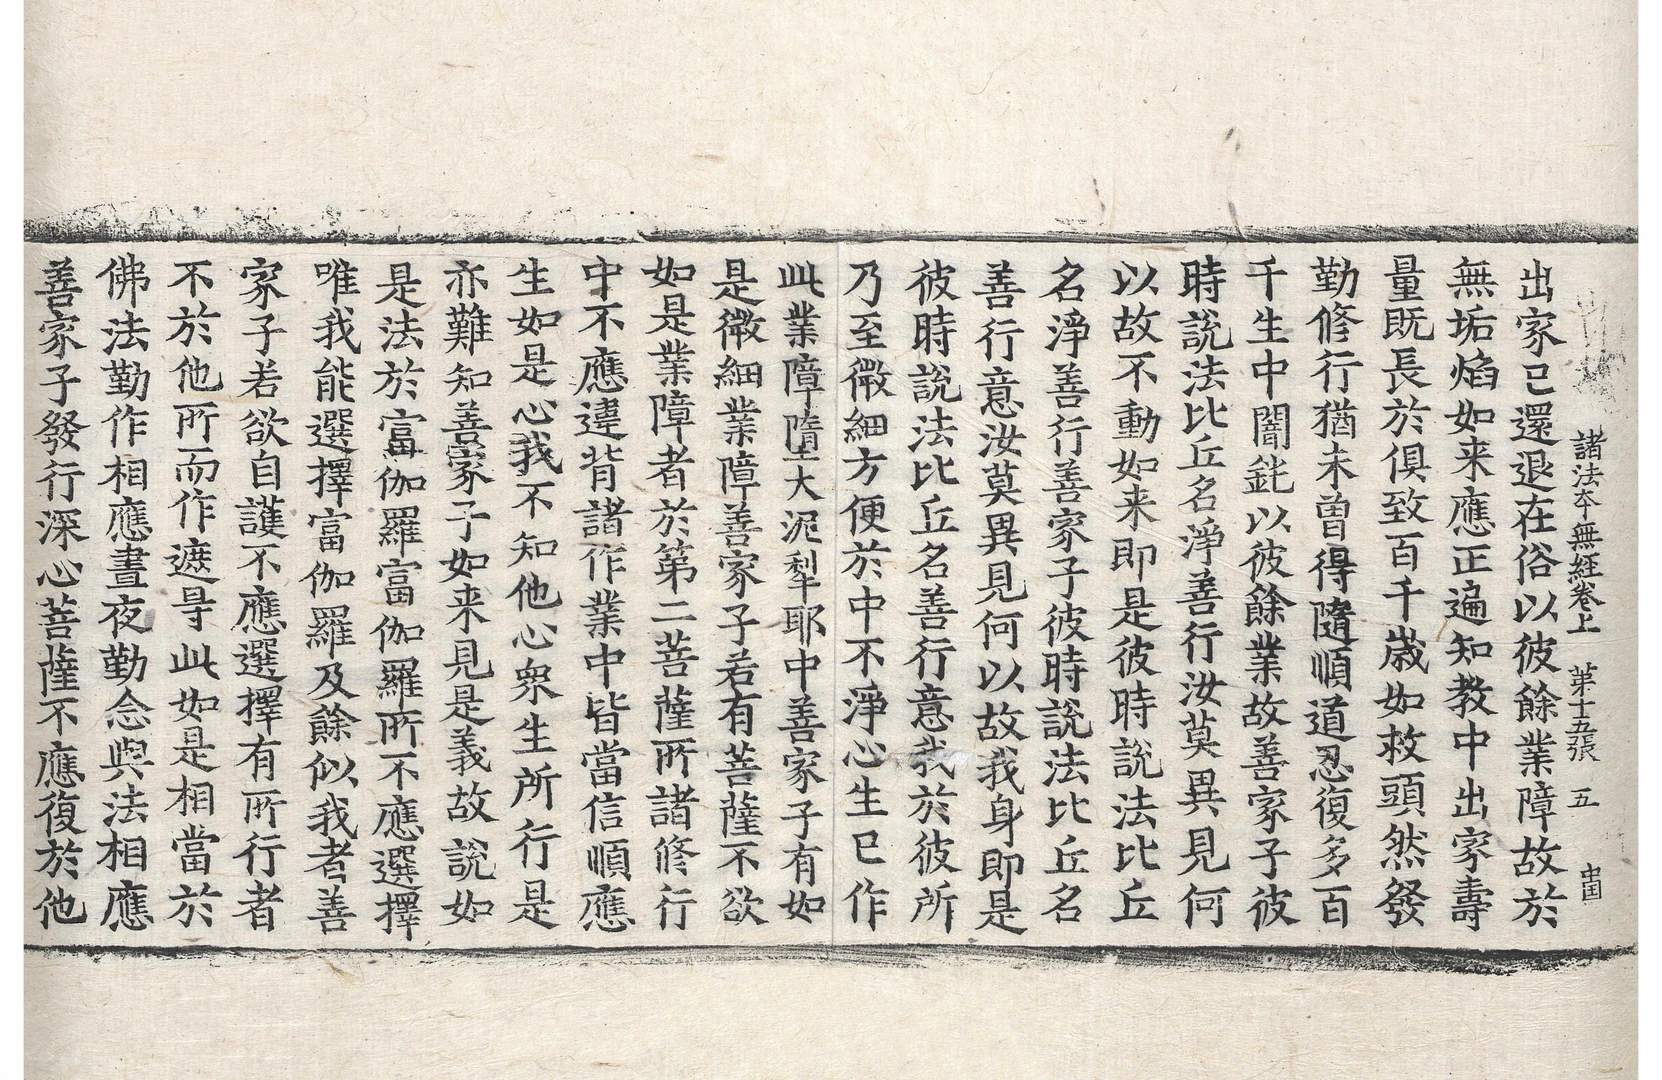 諸法夲無經卷上　第十五張　五　中国
出家已還退在俗以彼餘業障故於
無垢焰如来應正遍知教中出家壽
量既長於俱致百千歳如救頭然發
勤修行猶未曾得隨順道忍復多百
千生中闇鈍以彼餘業故善家子彼
時說法比丘名淨善行汝莫異見何
以故不動如来即是彼時說法比丘
名淨善行善家子彼時說法比丘名
善行意汝莫異見何以故我身即是
彼時說法比丘名善行意我於彼所
乃至微細方便於中不淨心生已作
此業障墮大泥犁耶中善家子有如
是微細業障善家子若有菩薩不欲
如是業障者於第二菩薩所諸修行
中不應違背諸作業中皆當信順應
生如是心我不知他心衆生所行是
亦難知善家子如来見是義故說如
是法於富伽羅富伽羅所不應選擇
唯我能選擇富伽羅及餘似我者善
家子若欲自護不應選擇有所行者
不於他所而作遮㝵此如是相當於
佛法勤作相應晝夜勤念與法相應
善家子發行深心菩薩不應復於他